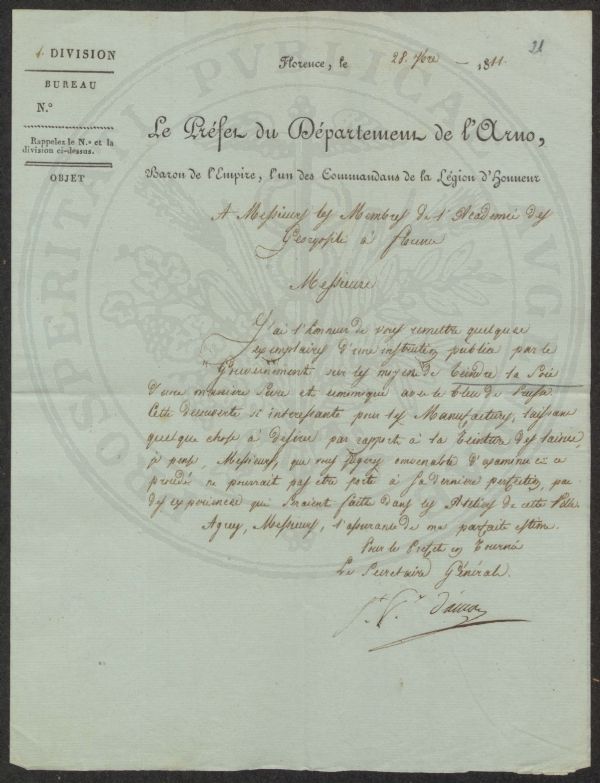 1. DIVISION
BUREAU
N.º
Rappelez le N.º et la
division ci-dessus.
OBJET
21
Florence, le 28. 7bre 1811.
Le Préfet du Département de l'Arno,
Baron de l'Empire, l'un des Commandans de la Légion d'Honneur
A Messieurs les Membres de l'Académie des
Georgofili à Florence
Messieurs
J'ai l'honneur de vous remettre quelques
exemplaires d'une instruction publiée par le
Gouvernement sur les moyens de teindre la Soie
d'une manière sure et avec le bleu de Prusse.
Cette découverte si interessante pour les Manufactures, laissant
quelque chose à désirer par rapport à la teinture des laines,
je pense, Messieurs, que vous jugerez convenable d'examiner si ce
procédé ne pourrait pas être porté à sa dernière perfection par
des expériences qui seraient faites dans les Ateliers de cette Ville.
Agréez, Messieurs, l'assurance de ma parfaite estime.
Pour le Préfet en Tournée
Le Secretaire Général.
PROSPERITATI PVBLICAE AVG